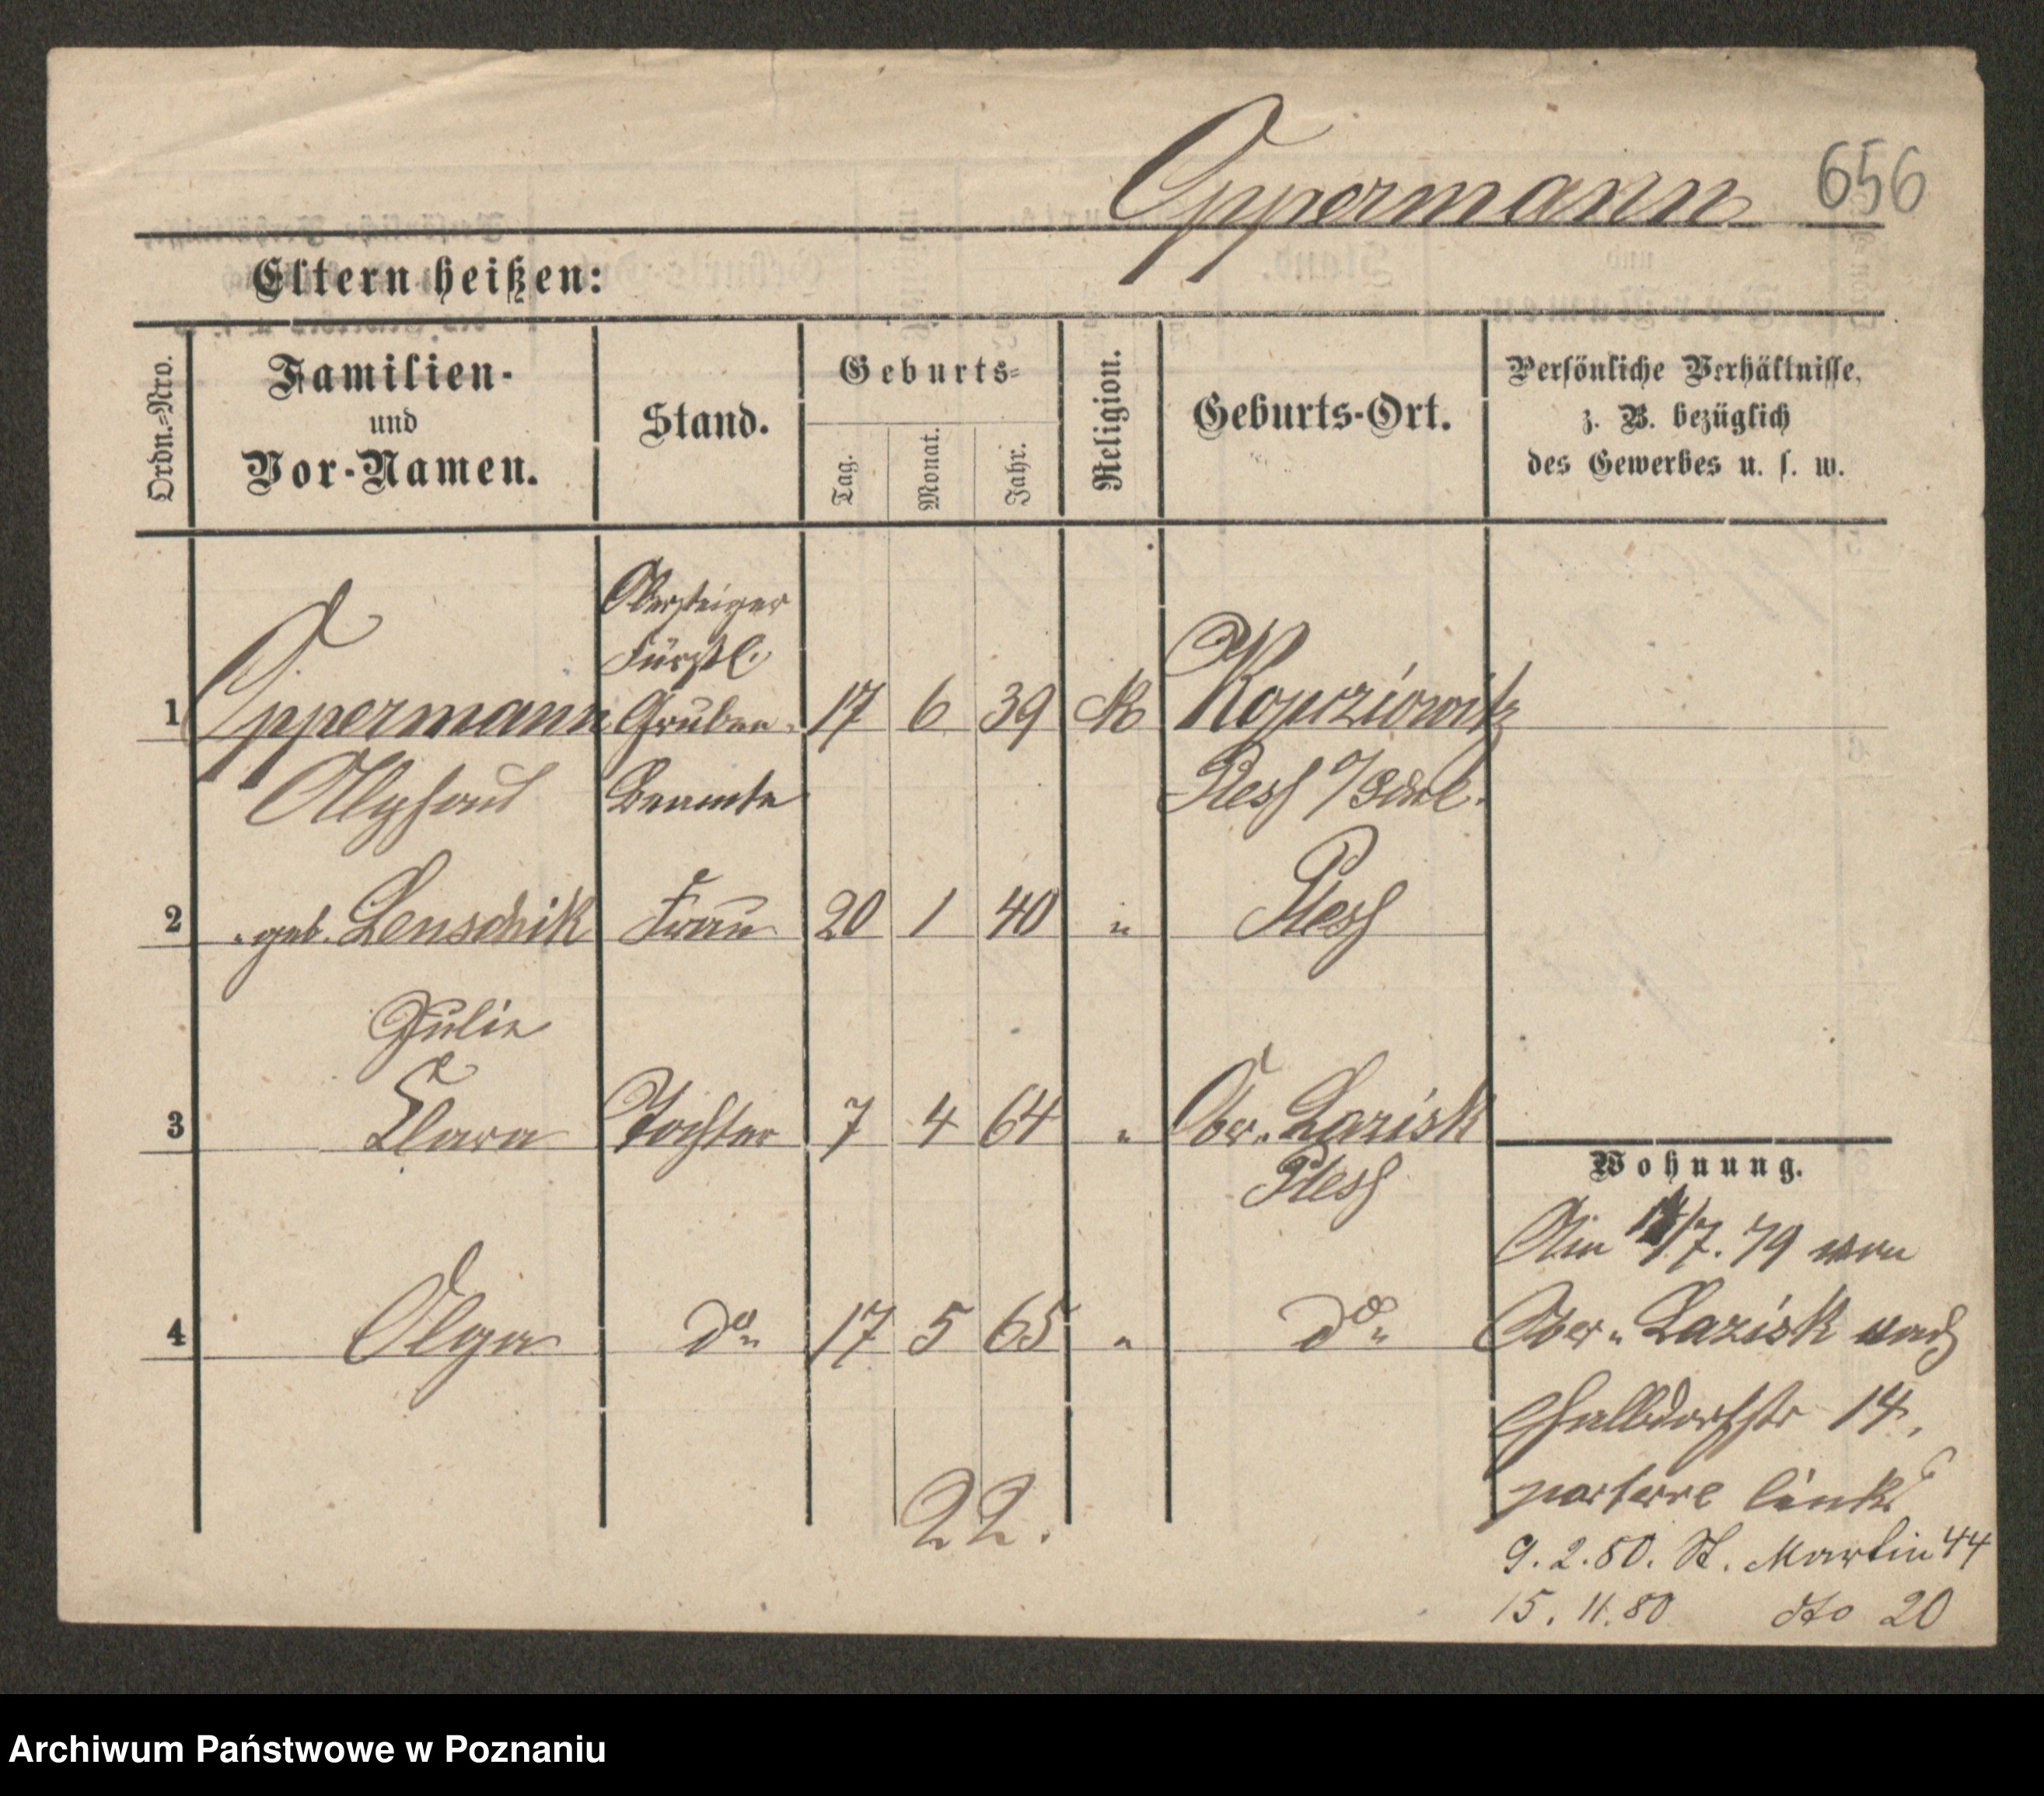 Oppermann 656
Eltern heißen:
Ordn.-Nro.
Familien-
und
Vor-Namen.
Stand.
Geburts-
Tag.
Monat.
Jahr.
Religion.
Geburts-Ort.
Persönliche Verhältnisse,
z. B. bezüglich
des Gewerbes u. s. w.
Obersteiger
Fürstl.
1 Oppermann Gruben- 17 6 39 K Kopcziowitz
Beamte Pless
2 geb. Lenschik Frau 20 1 40 " Pless
Julie
3 Clara Tochter 7 4 64 " Ober-Lazisk
Pless
4 Olga do 17 5 65 " do
22.
Wohnung.
Am /7. 79 von
Ober-Lazisk nach
Halbdorfstr 14,
parterre links
9. 2. 80. St. Martin 44
15. 11. 80 dto 20
Archiwum Państwowe w Poznaniu